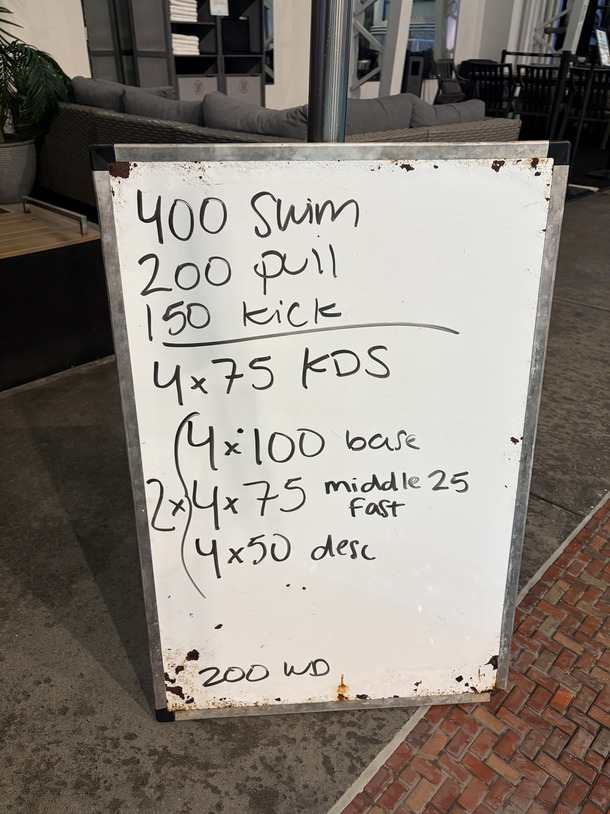 400 Swim
200 pull
150 kick
4x75 KDS
4x100 base
2x 4x75 middle 25
Fast
4x50 desc
200 WD